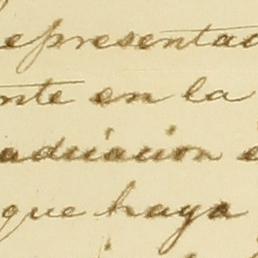 representad
nte en la
aduiacion e
que haya